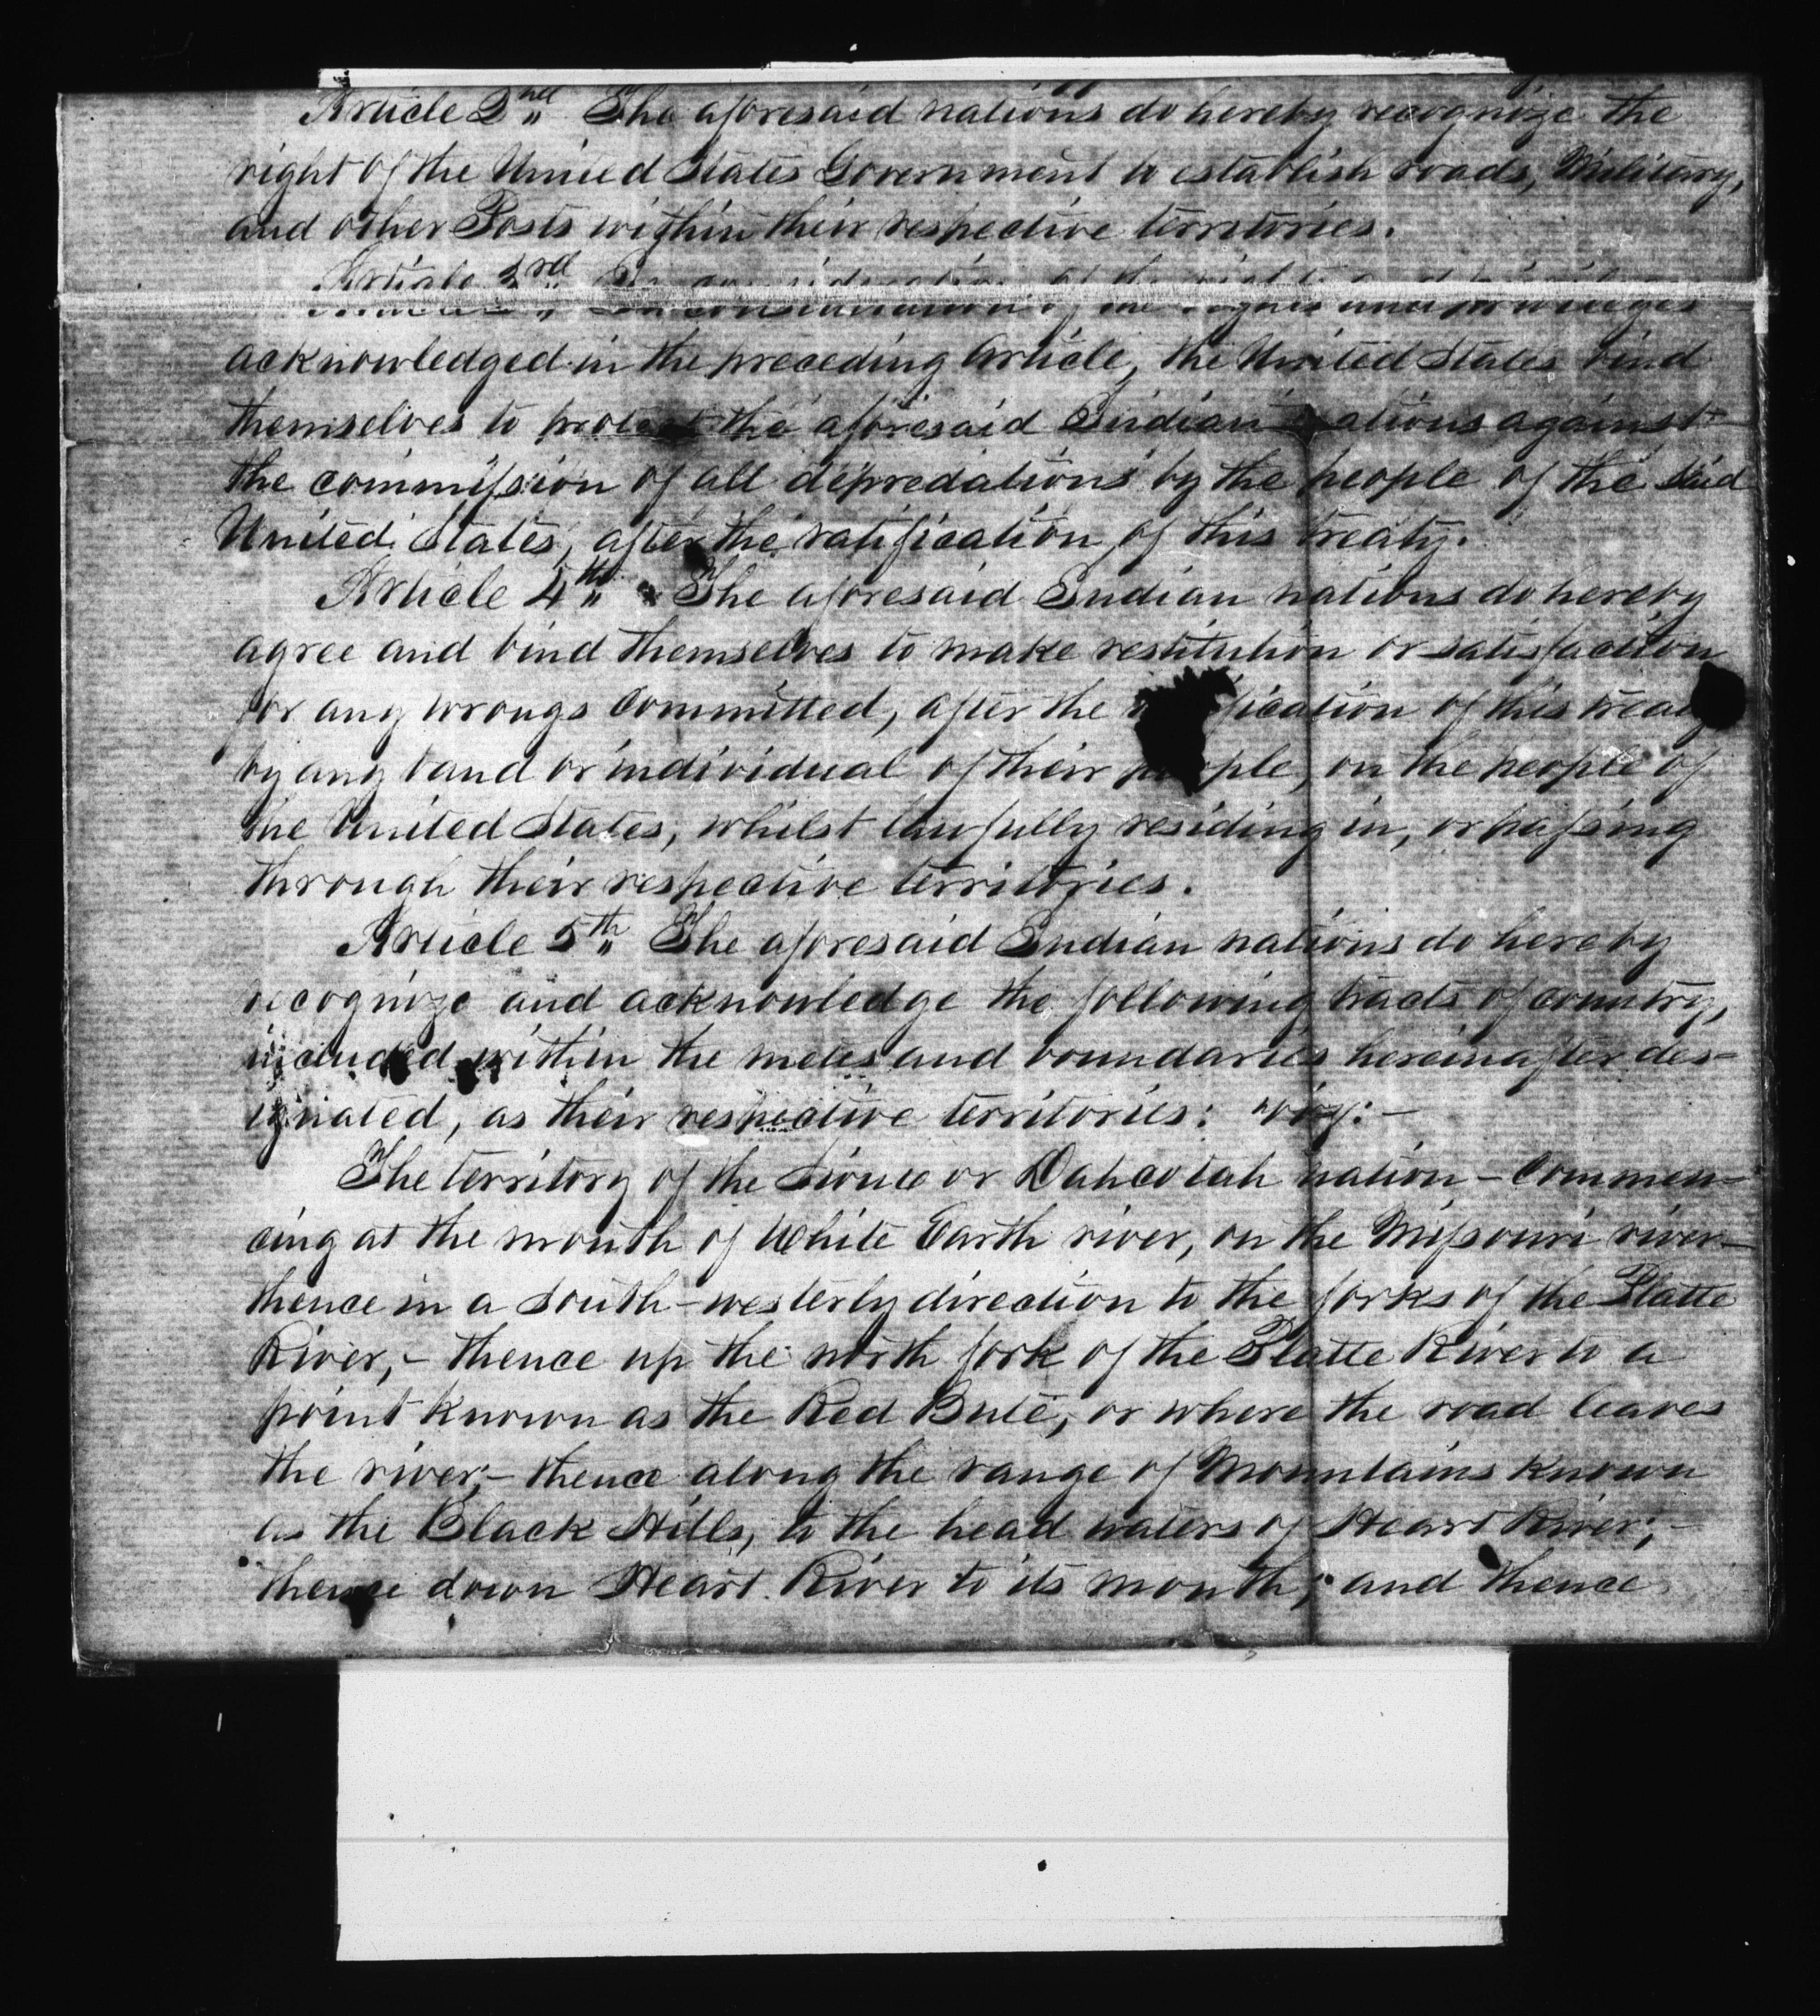 Article 2nd. The aforesaid nations do hereby recognize the
right of the United States Government to establish roads, Military,
and other Posts within their respective territories.
Article 3rd. In consideration of the rights and privileges
acknowledged in the preceding article, the United States bind
themselves to protect the aforesaid Indian nations against
the commission of all depredations by the people of the said
United States, after the ratification of this treaty.
Article 4th. The aforesaid Indian nations do hereby
agree and bind themselves to make restitution or satisfaction
for any wrongs committed, after the ratification of this treaty
by any band or individual of their people, on the people of
the United States, whilst lawfully residing in, or passing
through their respective territories.
Article 5th. The aforesaid Indian nations do hereby
recognize and acknowledge the following tracts of country,
included within the metes and boundaries hereinafter des-
ignated, as their respective territories: viz: -
The territory of the Sioux or Dahcotah nation - commen-
cing at the mouth of White Earth river, on the Missouri river -
thence in a south-westerly direction to the forks of the Platte
River, - thence up the north fork of the Platte River to a
point known as the Red Bute, or where the road leaves
the river; - thence along the range of Mountains known
as the Black Hills, to the head waters of Heart River; -
thence down Heart River to its mouth; and thence